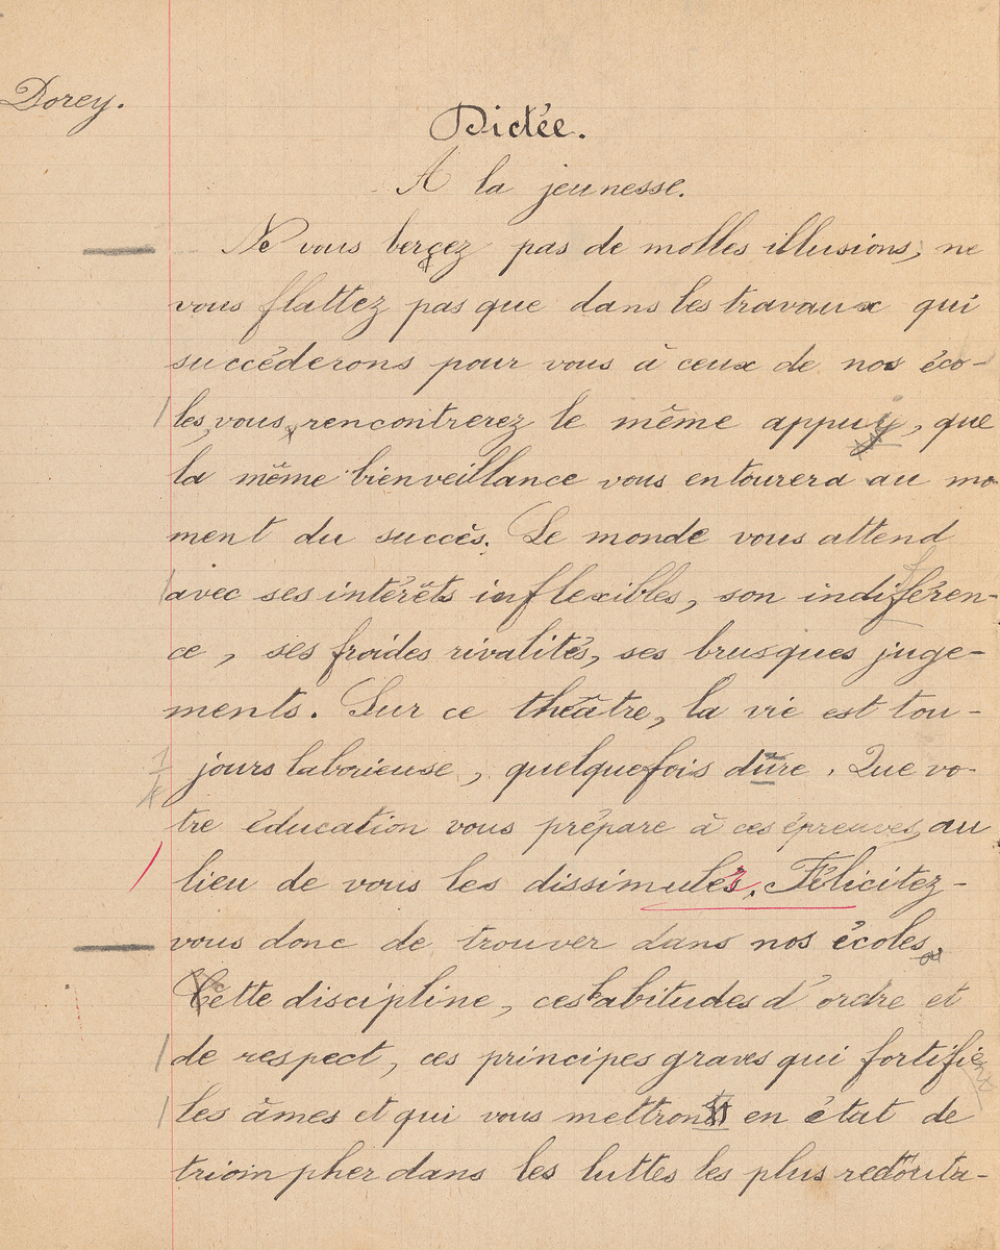 Dorey.
Dictée.
A la jeunesse.
Ne vous berçez pas de molles illusions, ne
vous flattez pas que dans les travaux qui
succéderons pour vous à ceux de nos éco-
les, vous, rencontrerez le même appuy, que
la même bienveillance vous entourera au mo
ment du succès. Le monde vous attend
avec ses intérêts inflexibles, son indiféren-
ce, ses froides rivalités, ses brusques juge-
ments. Sur ce théâtre, la vie est tou-
jours laborieuse, quelquefois dûre. Que vo-
tre éducation vous prépare à ces épreuves, au
lieu de vous les dissimuler. Félicitez-
vous donc de trouver dans nos écoles,
Cette discipline, ces habitudes d'ordre et
de respect, ces principes graves qui fortifie
les âmes et qui vous mettront en état de
triompher dans les luttes les plus redouta-